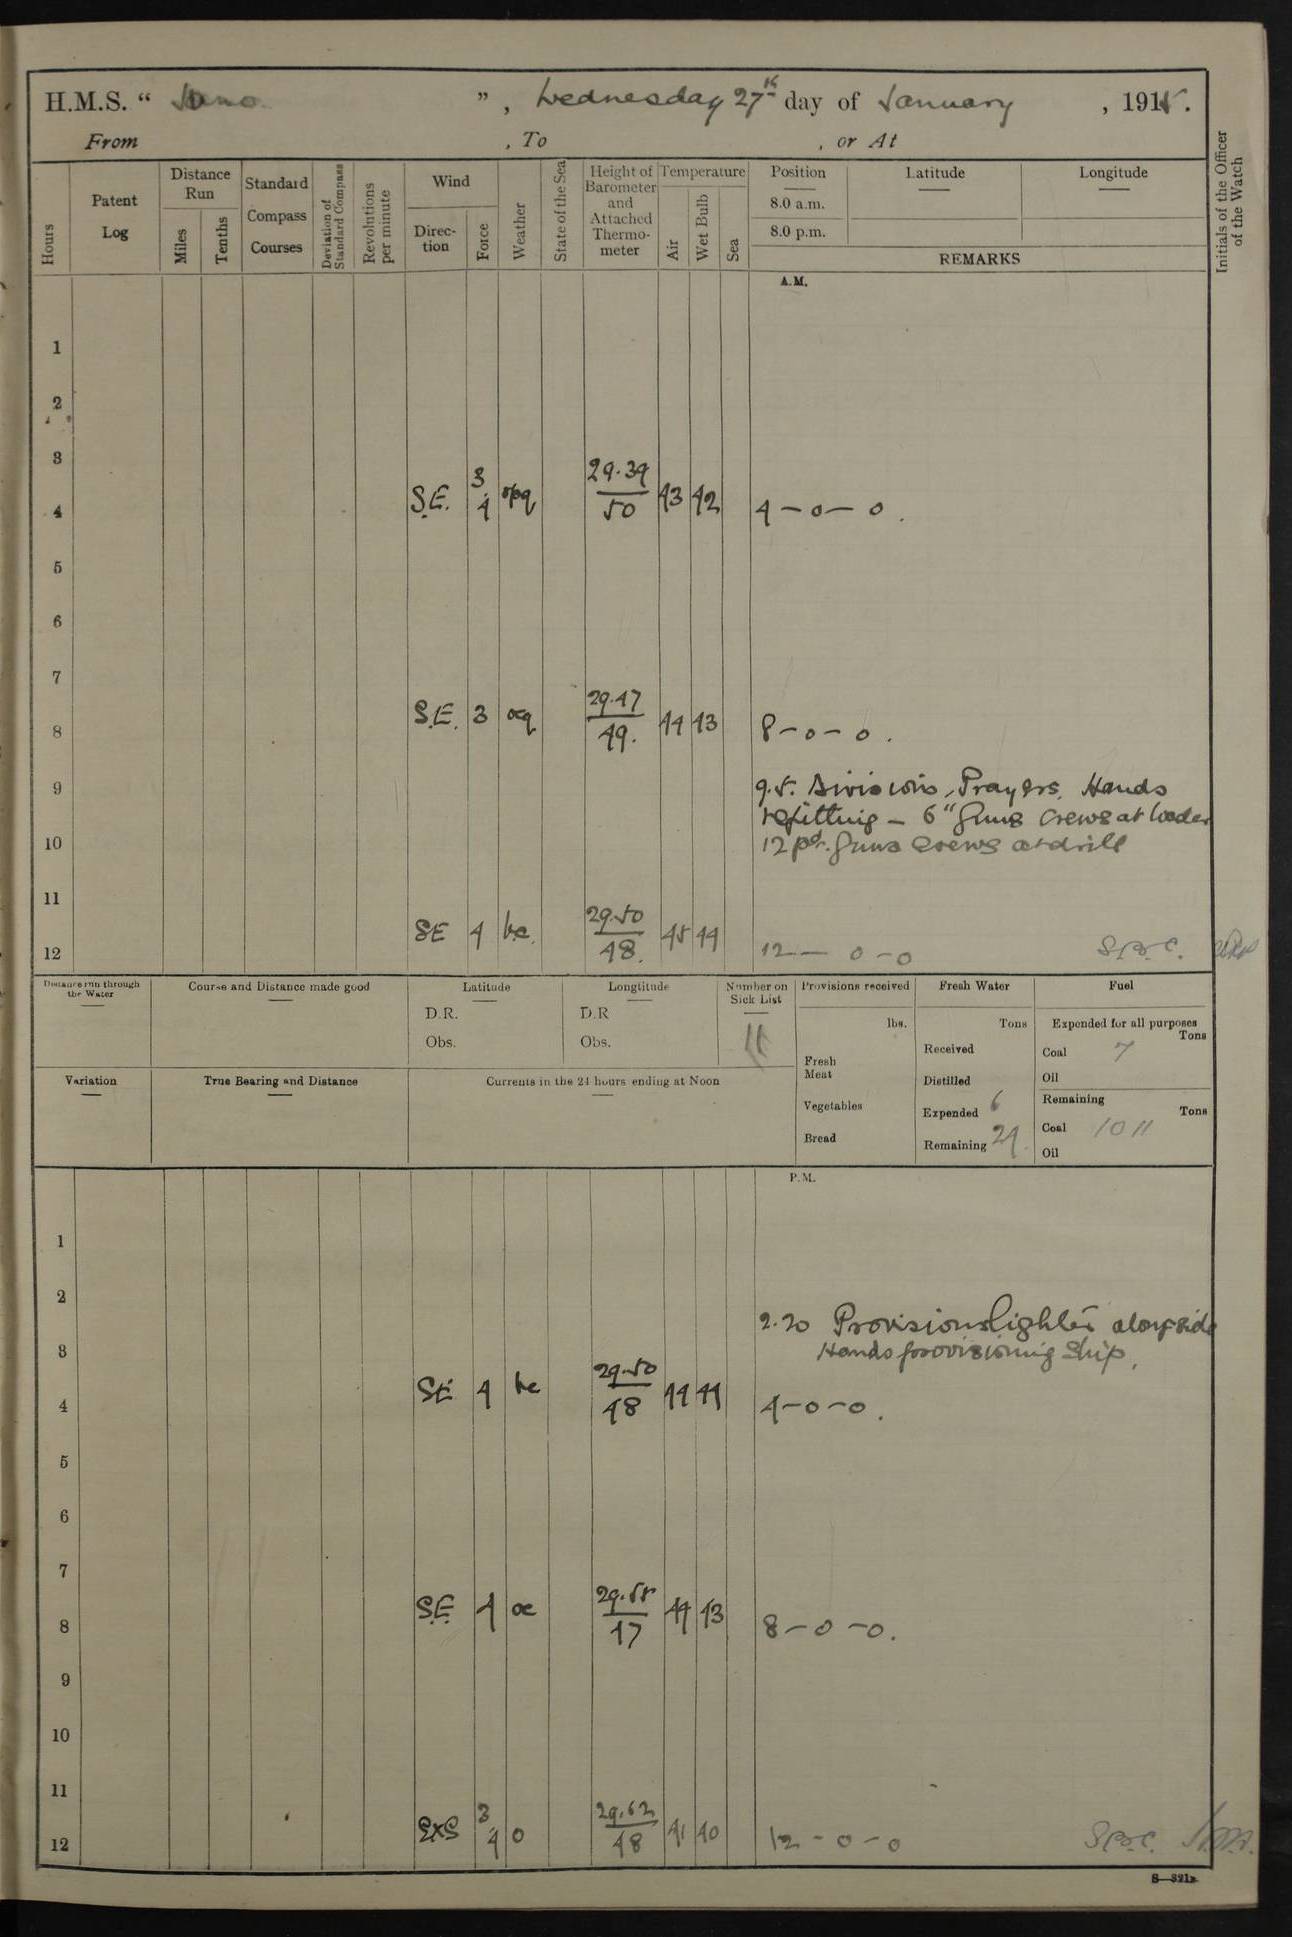 H.M.S. “ Juno ”, Wednesday 27th day of January, 1915.
From , To , or At
Hours
Patent Log
Distance Run
Miles
Tenths
Standard Compass Courses
Deviation of Standard Compass
Revolutions per minute
Wind
Direc-tion
Force
Weather
State of the Sea
Height of Barometer and Attached Thermo-meter
Temperature
Air
Wet Bulb
Sea
Position
8.0 a.m.
8.0 p.m.
Latitude
Longitude
REMARKS
Initials of the Officer of the Watch
A.M.
1
2
3
4 S.E. 3.4 opq 29.39/50 43 42 4-0-0.
5
6
7
8 S.E. 3 ocq 29.47/49. 44 43 8-0-0.
9 9.5. Divisions, Prayers. Hands
refitting - 6" Guns Crews at loader
10 12 pdr. Guns Crews at drill
11
12 SE 4 bc. 29.50/48. 45 44 12-0-0 S.B.C.
Distance run through the Water
Course and Distance made good
Latitude
D.R.
Obs.
Longtitude
D.R
Obs.
Number on Sick List
Provisions received
lbs.
Fresh Meat
Vegetables
Bread
Fresh Water
Tons
Received
Distilled
Expended 6
Remaining 29.
Fuel
Expended for all purposes
Tons
Coal 7
Oil
Remaining
Tons
Coal 1011
Oil
Variation
True Bearing and Distance
Currents in the 24 hours ending at Noon
P.M.
1
2
2.20 Provision lighter alongside
3 Hands provisioning Ship.
4 SE 4 bc 29.50/48 44 44 4-0-0.
5
6
7
8 S.E. 4 oc 29.55/47 44 43 8-0-0.
9
10
11
12 ExS 3.4 o 29.62/48 41 40 12-0-0 S.B.C.
S—321a